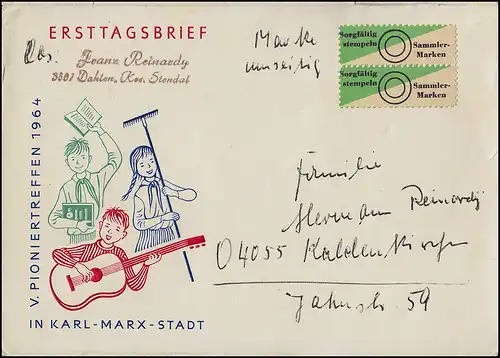 ERSTTAGSBRIEF
Abs. Franz Reinardy
3501 Dahlen, Krs. Stendal
Marke
umseitig
Sorgfältig
stempeln
Sammler-
Marken
Sorgfältig
stempeln
Sammler-
Marken
V. PIONIERTREFFEN 1964
IN KARL-MARX-STADT
Familie
Hermann Reinardy
04055 Kaldenkirchen
Jahnstr. 59